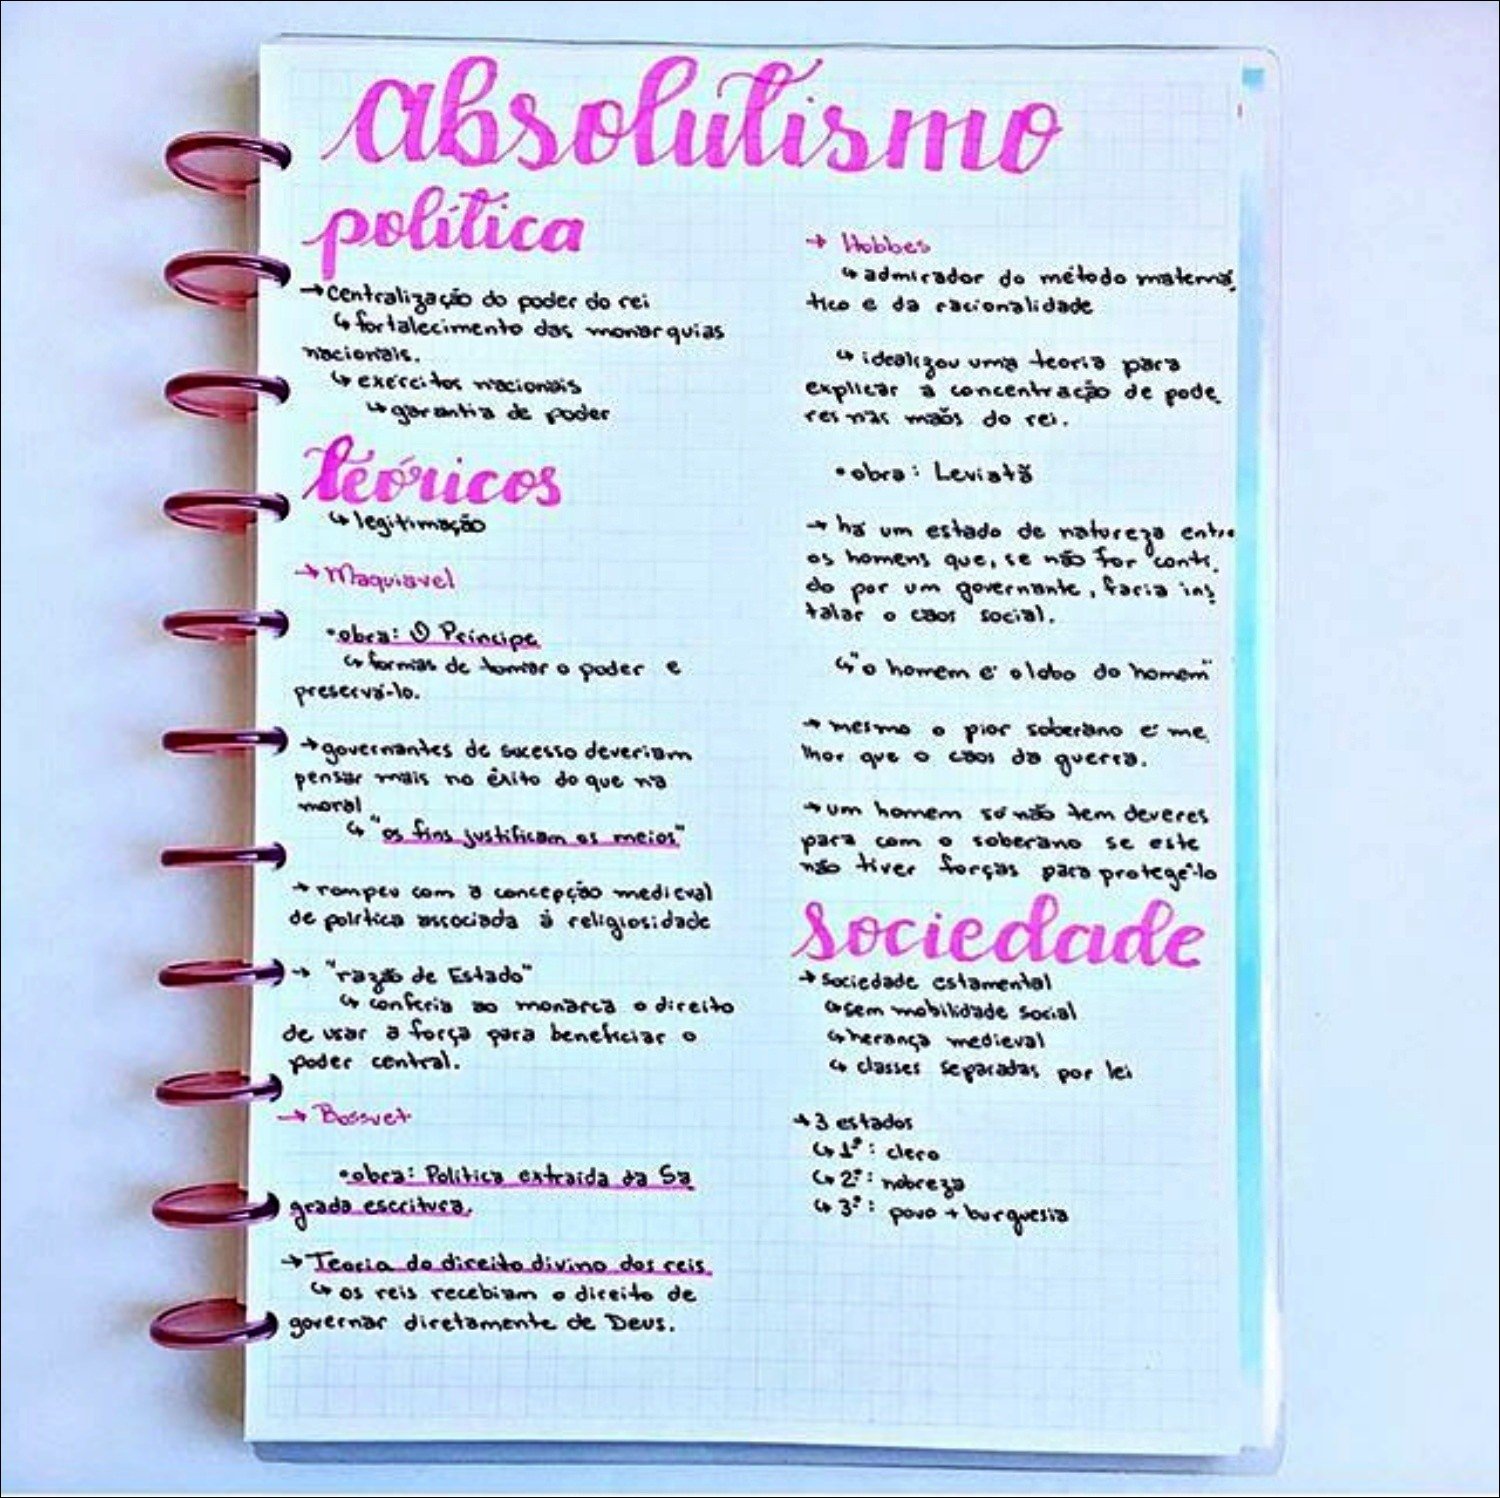 absolutismo
política
→ Centralização do poder do rei
↳ fortalecimento das monarquias
nacionais.
↳ exércitos nacionais
↳ garantia de poder
teóricos
↳ legitimação
→ Maquiavel
• obra: O Príncipe
↳ formas de tomar o poder e
preservá-lo.
→ governantes de sucesso deveriam
pensar mais no êxito do que na
moral
↳ "os fins justificam os meios"
→ rompeu com a concepção medieval
de política associada à religiosidade
→ "razão de Estado"
↳ conferia ao monarca o direito
de usar a força para beneficiar o
poder central.
→ Bossuet
• obra: Política extraída da Sa
grada escritura.
→ Teoria do direito divino dos reis
↳ os reis recebiam o direito de
governar diretamente de Deus.
→ Hobbes
↳ admirador do método matemá
tico e da racionalidade
↳ idealizou uma teoria para
explicar a concentração de pode
res nas maõs do rei.
• obra: Leviatã
→ há um estado de natureza entre
os homens que, se não for conti
do por um governante, faria ins
talar o caos social.
↳ "o homem é o lobo do homem"
→ mesmo o pior soberano é me
lhor que o caos da guerra.
→ um homem só não tem deveres
para com o soberano se este
não tiver forças para protegê-lo
sociedade
→ Sociedade estamental
↳ sem mobilidade social
↳ herança medieval
↳ classes separadas por lei
→ 3 estados
↳ 1º: clero
↳ 2º: nobreza
↳ 3º: povo + burguesia